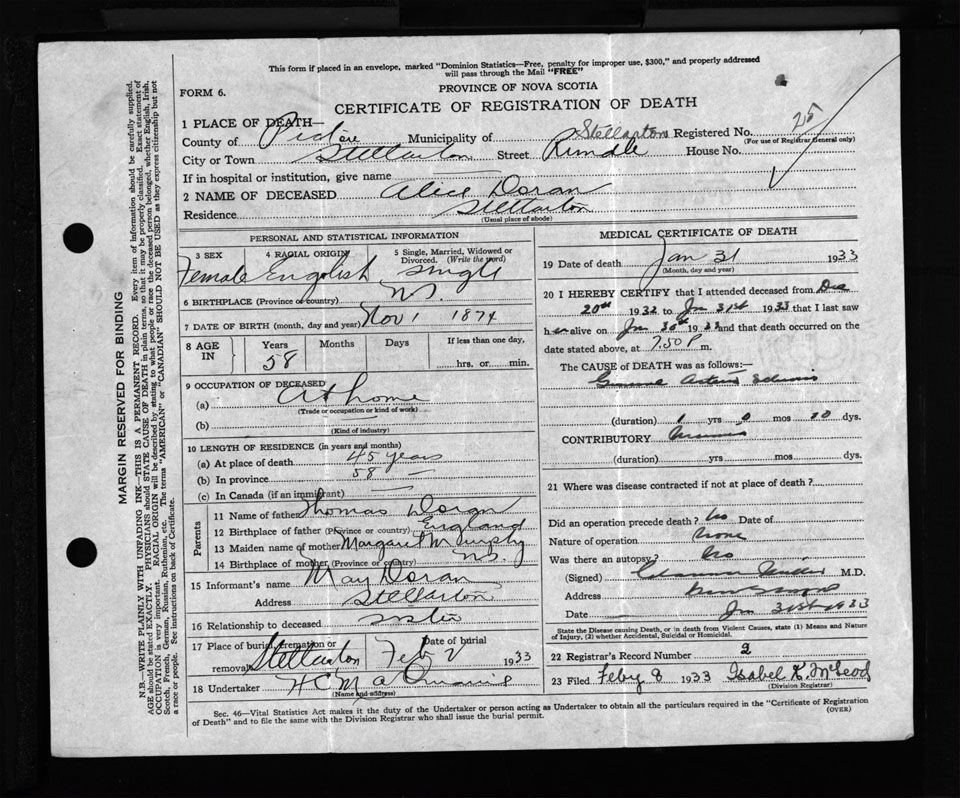 This form if placed in an envelope, marked "Dominion Statistics—Free, penalty for improper use, $300," and properly addressed
will pass through the Mail "FREE"
PROVINCE OF NOVA SCOTIA
FORM 6.
CERTIFICATE OF REGISTRATION OF DEATH
1 PLACE OF DEATH—
County of Pictou Municipality of Stellarton Registered No. 25
(For use of Registrar General only)
City or Town Stellarton Street Rundle House No.
If in hospital or institution, give name
2 NAME OF DECEASED Alice Doran
Residence Stellarton
(Usual place of abode)
PERSONAL AND STATISTICAL INFORMATION
3 SEX 4 RACIAL ORIGIN 5 Single, Married, Widowed or
Divorced. (Write the word)
Female English Single
6 BIRTHPLACE (Province or country) N.S.
7 DATE OF BIRTH (month, day and year) Nov 1 1874
8 AGE IN Years Months Days If less than one day,
58 hrs. or min.
9 OCCUPATION OF DECEASED
(a) At home
(Trade or occupation or kind of work)
(b)
(Kind of industry)
10 LENGTH OF RESIDENCE (in years and months)
(a) At place of death 45 years
(b) In province 58 —
(c) In Canada (if an immigrant) —
Parents
11 Name of father Thomas Doran
12 Birthplace of father (Province or country) England
13 Maiden name of mother Margaret Murphy
14 Birthplace of mother (Province or country) N.S.
15 Informant's name May Doran
Address Stellarton
16 Relationship to deceased sister
17 Place of burial, cremation or Date of burial
removal Stellarton Feb 2 1933
18 Undertaker H C
(Name and address)
MEDICAL CERTIFICATE OF DEATH
19 Date of death Jan 31 1933
(Month, day and year)
20 I HEREBY CERTIFY that I attended deceased from Dec
20th 1932 to Jan 31st 1933 that I last saw
her alive on Jan 30th 1933 and that death occurred on the
date stated above, at 7.50 P m.
The CAUSE of DEATH was as follows:
General
(duration) 1 yrs 0 mos 10 dys.
CONTRIBUTORY
(duration) yrs mos dys.
21 Where was disease contracted if not at place of death?
Did an operation precede death? No Date of
Nature of operation None
Was there an autopsy? No
(Signed) M.D.
Address
Date Jan 31st 1933
State the Disease causing Death, or in death from Violent Causes, state (1) Means and Nature
of Injury, (2) whether Accidental, Suicidal or Homicidal.
22 Registrar's Record Number 2
23 Filed Feby 8 1933 Isabel K. McLeod
(Division Registrar)
Sec. 46—Vital Statistics Act makes it the duty of the Undertaker or person acting as Undertaker to obtain all the particulars required in the "Certificate of Registration
of Death" and to file the same with the Division Registrar who shall issue the burial permit.
(OVER)
MARGIN RESERVED FOR BINDING
N.B.—WRITE PLAINLY WITH UNFADING INK—THIS IS A PERMANENT RECORD. Every item of information should be carefully supplied.
AGE should be stated EXACTLY. PHYSICIANS should STATE CAUSE OF DEATH in plain terms, so that it may be properly classified. Exact statement of
OCCUPATION is very important. RACIAL ORIGIN will be described by stating to what people or race the deceased person belonged, whether English, Irish,
Scotch, French, German, Russian, Ruthenian, etc. The terms "AMERICAN" or "CANADIAN" SHOULD NOT BE USED as they express citizenship but not
a race or people. See instructions on back of Certificate.